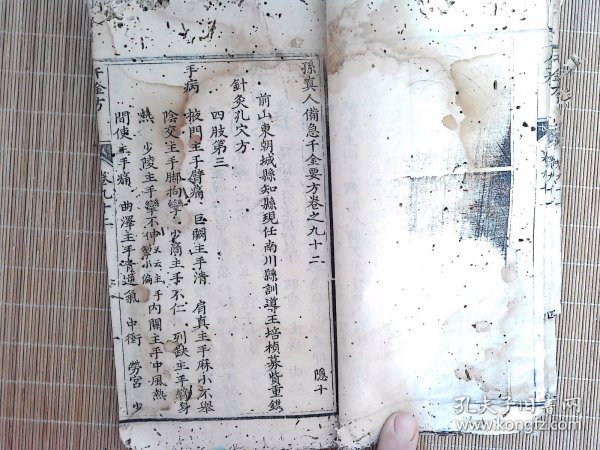 孫真人備急千金要方卷之九十二
隱十
前山東朝城縣知縣現任南川縣訓導王培楨募貲重鐫
針灸孔穴方
四肢第三
手病 掖門主手臂痛 巨闕主手清 肩真主手麻小不舉
陰交主手脚拘攣 少商主手不仁 列缺主手臂身
熱 少陵主手攣不伸 又云主手 內關主手中風熱
間使主手痛 曲澤主手青逆氣 中衝 勞宮 少
千金方
卷九十二
孔夫子旧书网
www.kongfz.com